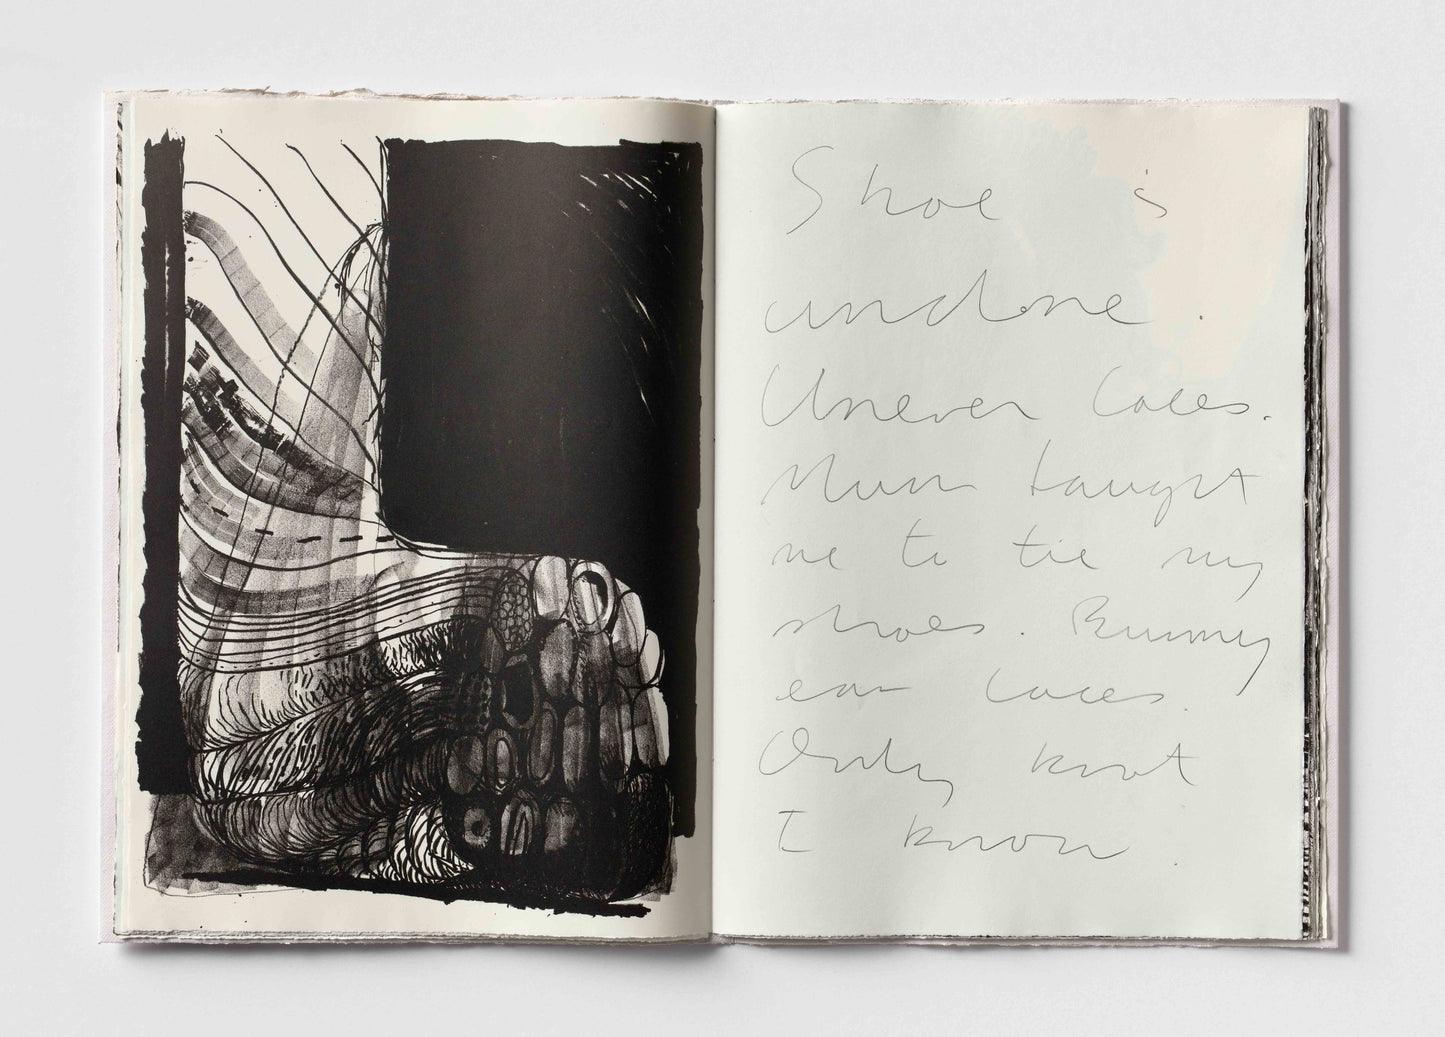 Shoe is
undone.
Uneven laces.
Mum taught
me to tie my
shoes. Bunny
ear laces.
Only knot
I know.